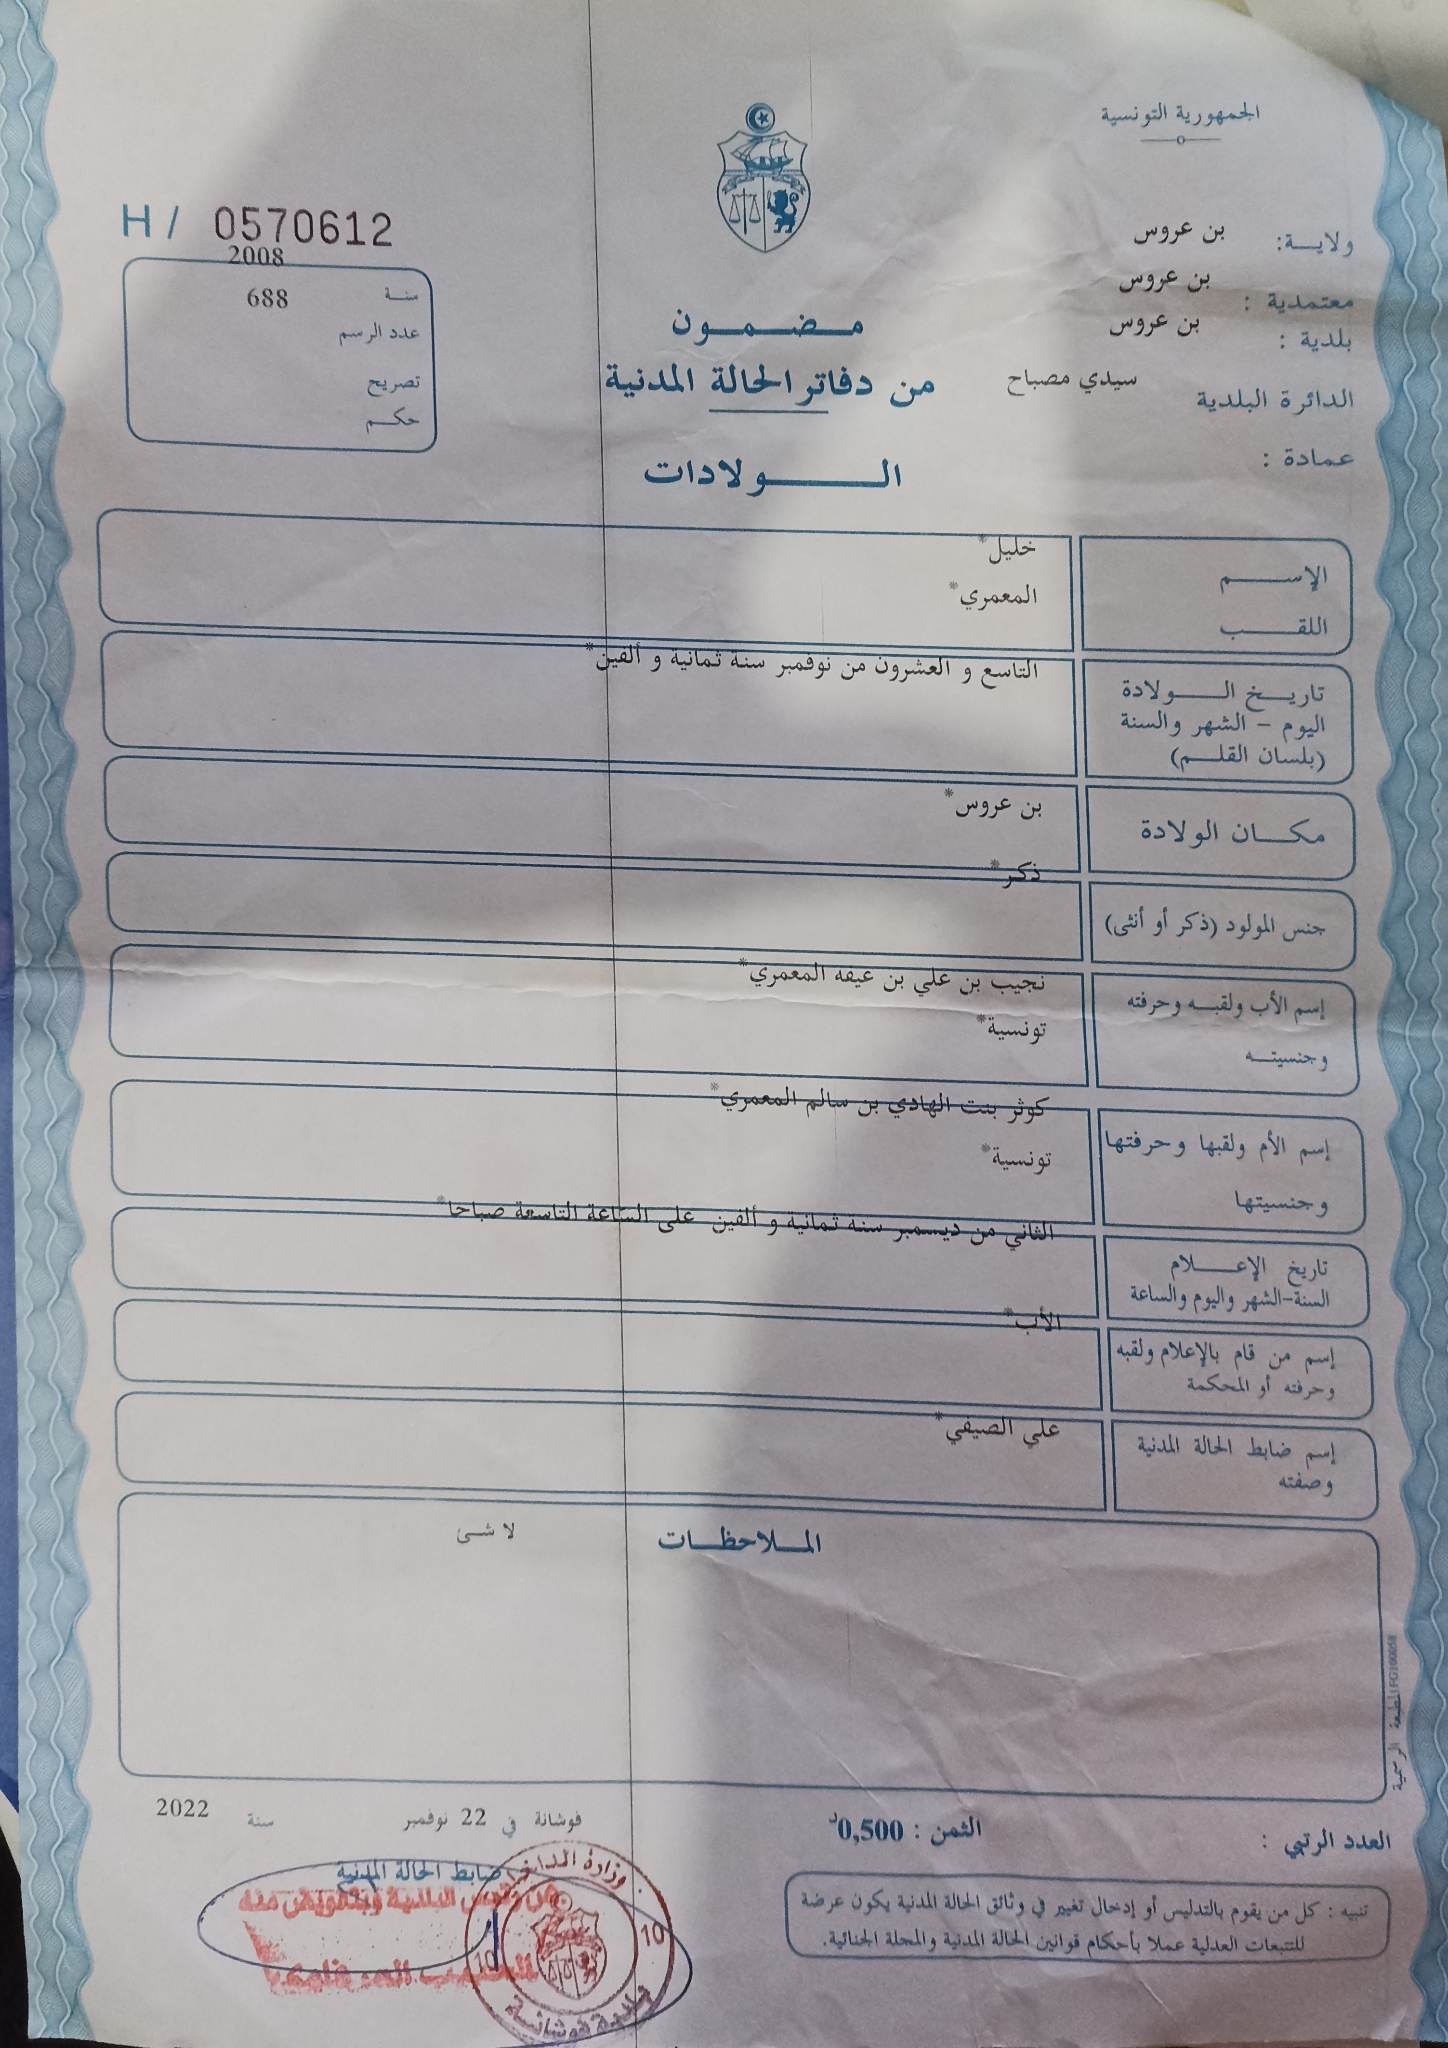 الجمهورية التونسية
ولاية: بن عروس
معتمدية : بن عروس
بلدية : بن عروس
الدائرة البلدية سيدي مصباح
عمادة :
H / 0570612
سنة 2008
عدد الرسم 688
تصريح
حكم
مضمون
من دفاتر الحالة المدنية
الولادات
الإسم خليل*
اللقب المعمري*
تاريخ الولادة
اليوم - الشهر والسنة
(بلسان القلم)
التاسع و العشرون من نوفمبر سنة ثمانية و ألفين*
مكان الولادة بن عروس*
جنس المولود (ذكر أو أنثى) ذكر*
إسم الأب ولقبه وحرفته
وجنسيته
نجيب بن علي بن عيفه المعمري*
تونسية*
إسم الأم ولقبها وحرفتها
وجنسيتها
كوثر بنت الهادي بن سالم المعمري*
تونسية*
تاريخ الإعلام
السنة-الشهر واليوم والساعة
الثاني من ديسمبر سنة ثمانية و ألفين على الساعة التاسعة صباحا*
إسم من قام بالإعلام ولقبه
وحرفته أو المحكمة
الأب*
إسم ضابط الحالة المدنية
وصفته
علي الصيفي*
الملاحظات
لا شئ
المطبعة الرسمية FG100058
العدد الرتبي :
الثمن : 0,500د
فوشانة في 22 نوفمبر سنة 2022
ضابط الحالة المدنية
عن رئيس البلدية وبتفويض منه
وزارة الداخلية
10
10
بلدية فوشانة
تنبيه : كل من يقوم بالتدليس أو إدخال تغيير في وثائق الحالة المدنية يكون عرضة
للتتبعات العدلية عملا بأحكام قوانين الحالة المدنية والمجلة الجنائية.